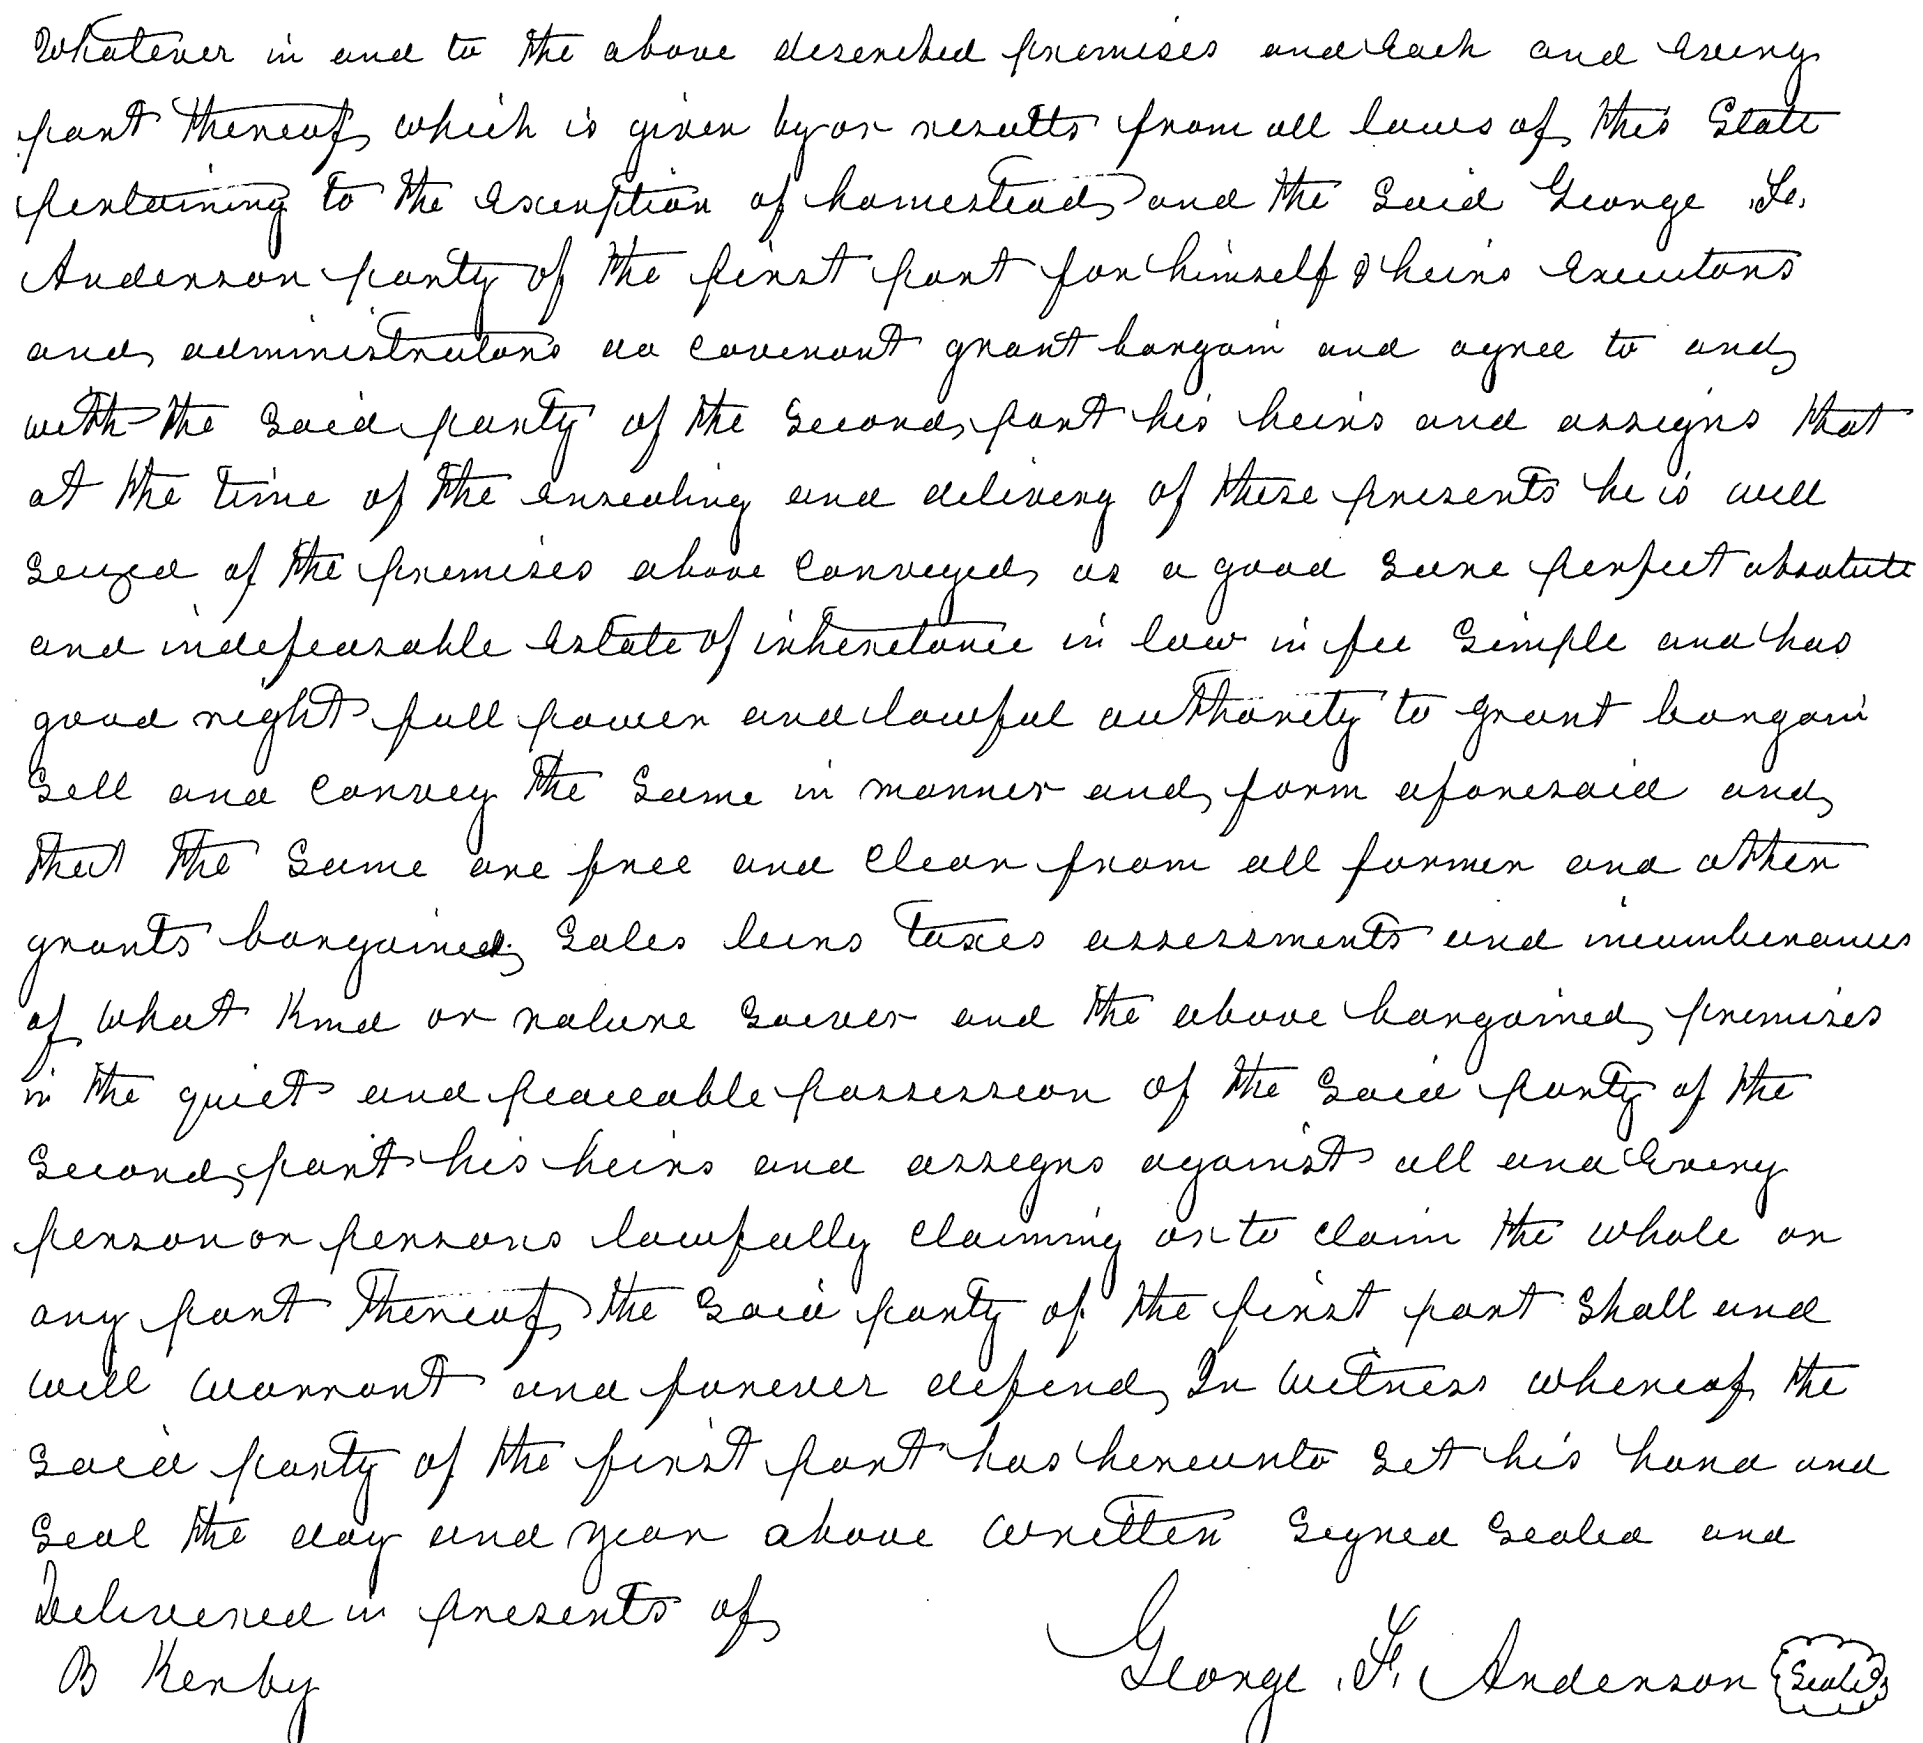 Whatever in and to the above described premises and Each and Every
part thereof which is given by or results from all laws of this State
pertaining to the Exemption of homestead and the Said George F.
Anderson party of the first part for himself & heirs Executors
and administrators do Covenant grant bargain and agree to and
with the Said party of the Second part his heirs and assigns that
at the Time of the ensealing and delivery of these presents he is well
Seized of the premises above Conveyed as a good Sure perfect absolute
and indefeasable Estate of inheritance in law in fee Simple and has
good right full power and lawful authority to grant bargain
Sell and Convey the Same in manner and form aforesaid and
that the Same are free and Clear from all former and other
grants bargained Sales leins Taxes assessments and incumberances
of what Kind or nature Soever and the above bargained premises
in the quiet and peaceable possession of the Said party of the
Second part his heirs and assegns against all and Every
person or persons lawfully Claiming or to Claim the whole or
any part Thereof the Said party of the first part Shall and
will Warrant and forever defend In Witness whereof the
Said party of the first part has hereunto Set his hand and
Seal the day and year above Written Segned Sealed and
Delivered in presents of
B Kerby George F. Anderson Seal